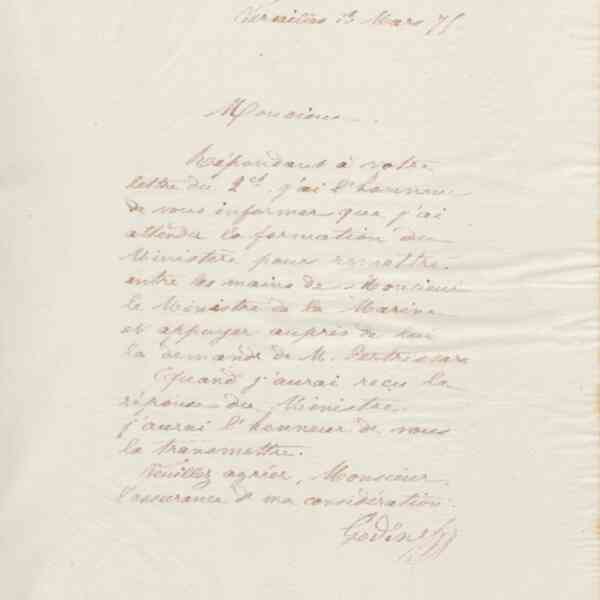 Versailles 13 Mars 75.
Monsieur
Répondant à votre
lettre du 2 ct. j'ai l'honneur
de vous informer que j'ai
attendu la formation du
Ministère pour remettre
entre les mains de Monsieur
le Ministre de la Marine
et appuyer auprès de lui
la demande de M.
Quand j'aurai reçu la
réponse du Ministre
j'aurai l'honneur de vous
la transmettre.
Veuillez agréer, Monsieur,
l'assurance de ma considération.
Godin